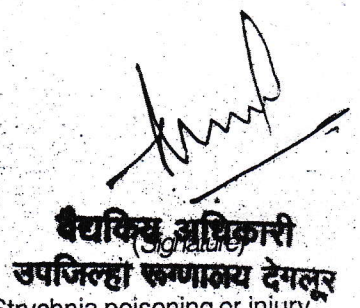 वैद्यकिय अधिकारी
(Signature)
उपजिल्हा रूग्णालय देगलूर
Strychnia poisoning or injury